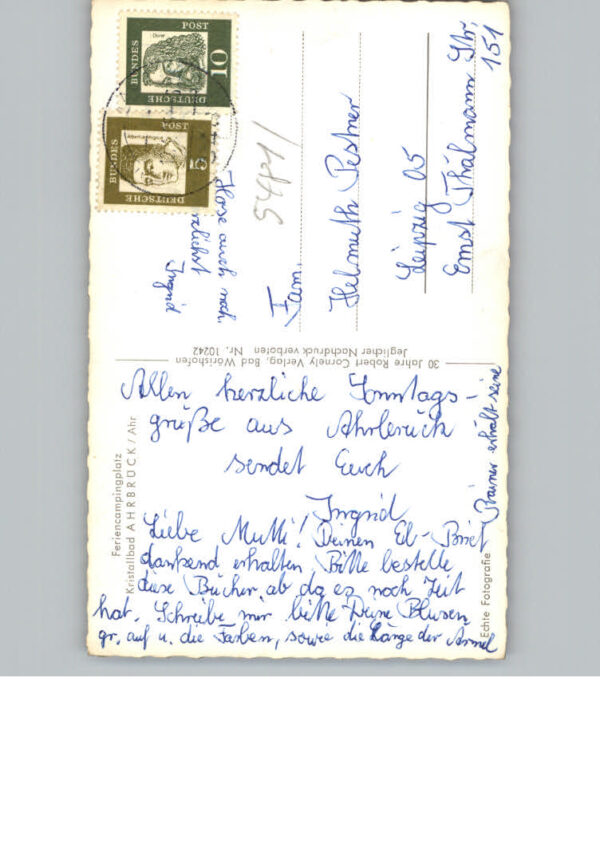 Feriencampingplatz
Kristallbad AHRBRÜCK / Ahr
Allen herzliche Sonntags-
grüße aus Ahrbrück
sendet Euch
Ingrid
Liebe Mutti! Deinen El-Brief
dankend erhalten. Bitte bestelle
diese Bücher, ob da es noch Zeit
hat. Schreibe mir bitte Deine Blusen
gr. auf u. die Farben, sowie die Länge der Ärmel
Rainer erhält seine
Hose auch noch.
Herzlichst
Ingrid
Echte Fotografie
30 Jahre Robert Cornely Verlag, Bad Wörishofen
Jeglicher Nachdruck verboten Nr. 10242
Fam.
Helmuth Pestner
Leipzig 05
Ernst Thälmann Str.
151
5484/
DEUTSCHE
BUNDES
POST
10
Dürer
DEUTSCHE
BUNDES
POST
5